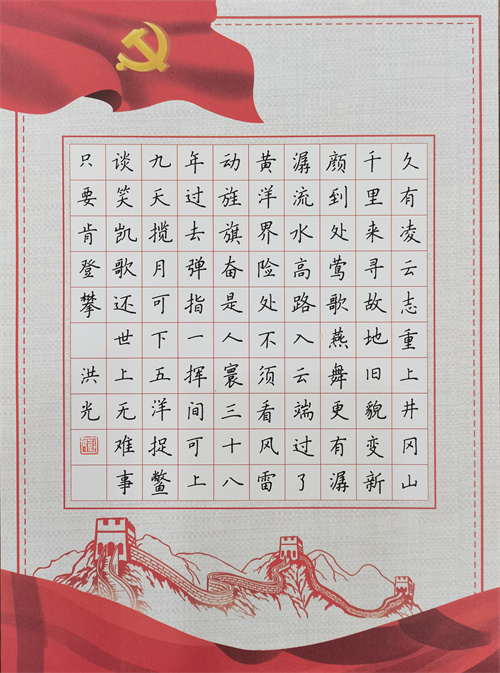 久有凌云志重上井冈山
千里来寻故地旧貌变新
颜到处莺歌燕舞更有潺
潺流水高路入云端过了
黄洋界险处不须看风雷
动旌旗奋是人寰三十八
年过去弹指一挥间可上
九天揽月可下五洋捉鳖
谈笑凯歌还世上无难事
只要肯登攀 洪光